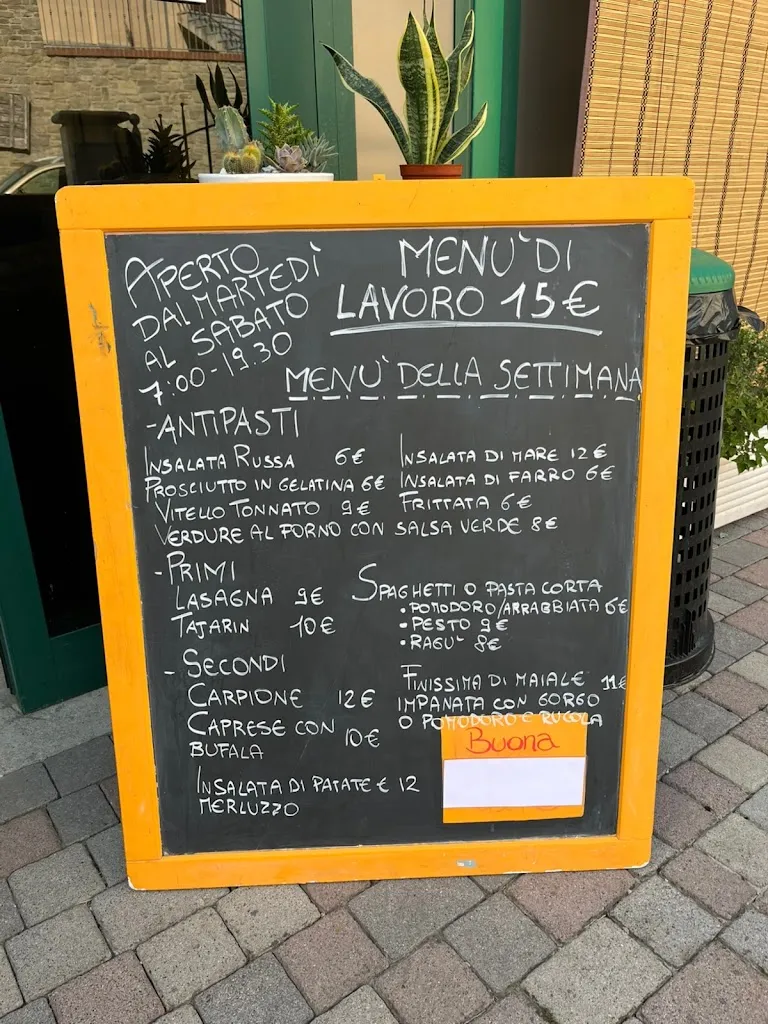 APERTO
DAL MARTEDÌ
AL SABATO
7:00-19.30
MENU' DI
LAVORO 15€
MENU' DELLA SETTIMANA
-ANTIPASTI
INSALATA RUSSA 6€
PROSCIUTTO IN GELATINA 6€
VITELLO TONNATO 9€
VERDURE AL FORNO CON SALSA VERDE 8€
INSALATA DI MARE 12€
INSALATA DI FARRO 6€
FRITTATA 6€
-PRIMI
LASAGNA 9€
TAJARIN 10€
SPAGHETTI O PASTA CORTA
•POMODORO/ARRABBIATA 6€
•PESTO 9€
•RAGU' 8€
-SECONDI
CARPIONE 12€
CAPRESE CON
BUFALA 10€
INSALATA DI PATATE € 12
MERLUZZO
FINISSIMA DI MAIALE 11€
IMPANATA CON GORGO
O POMODORO E RUCOLA
Buona